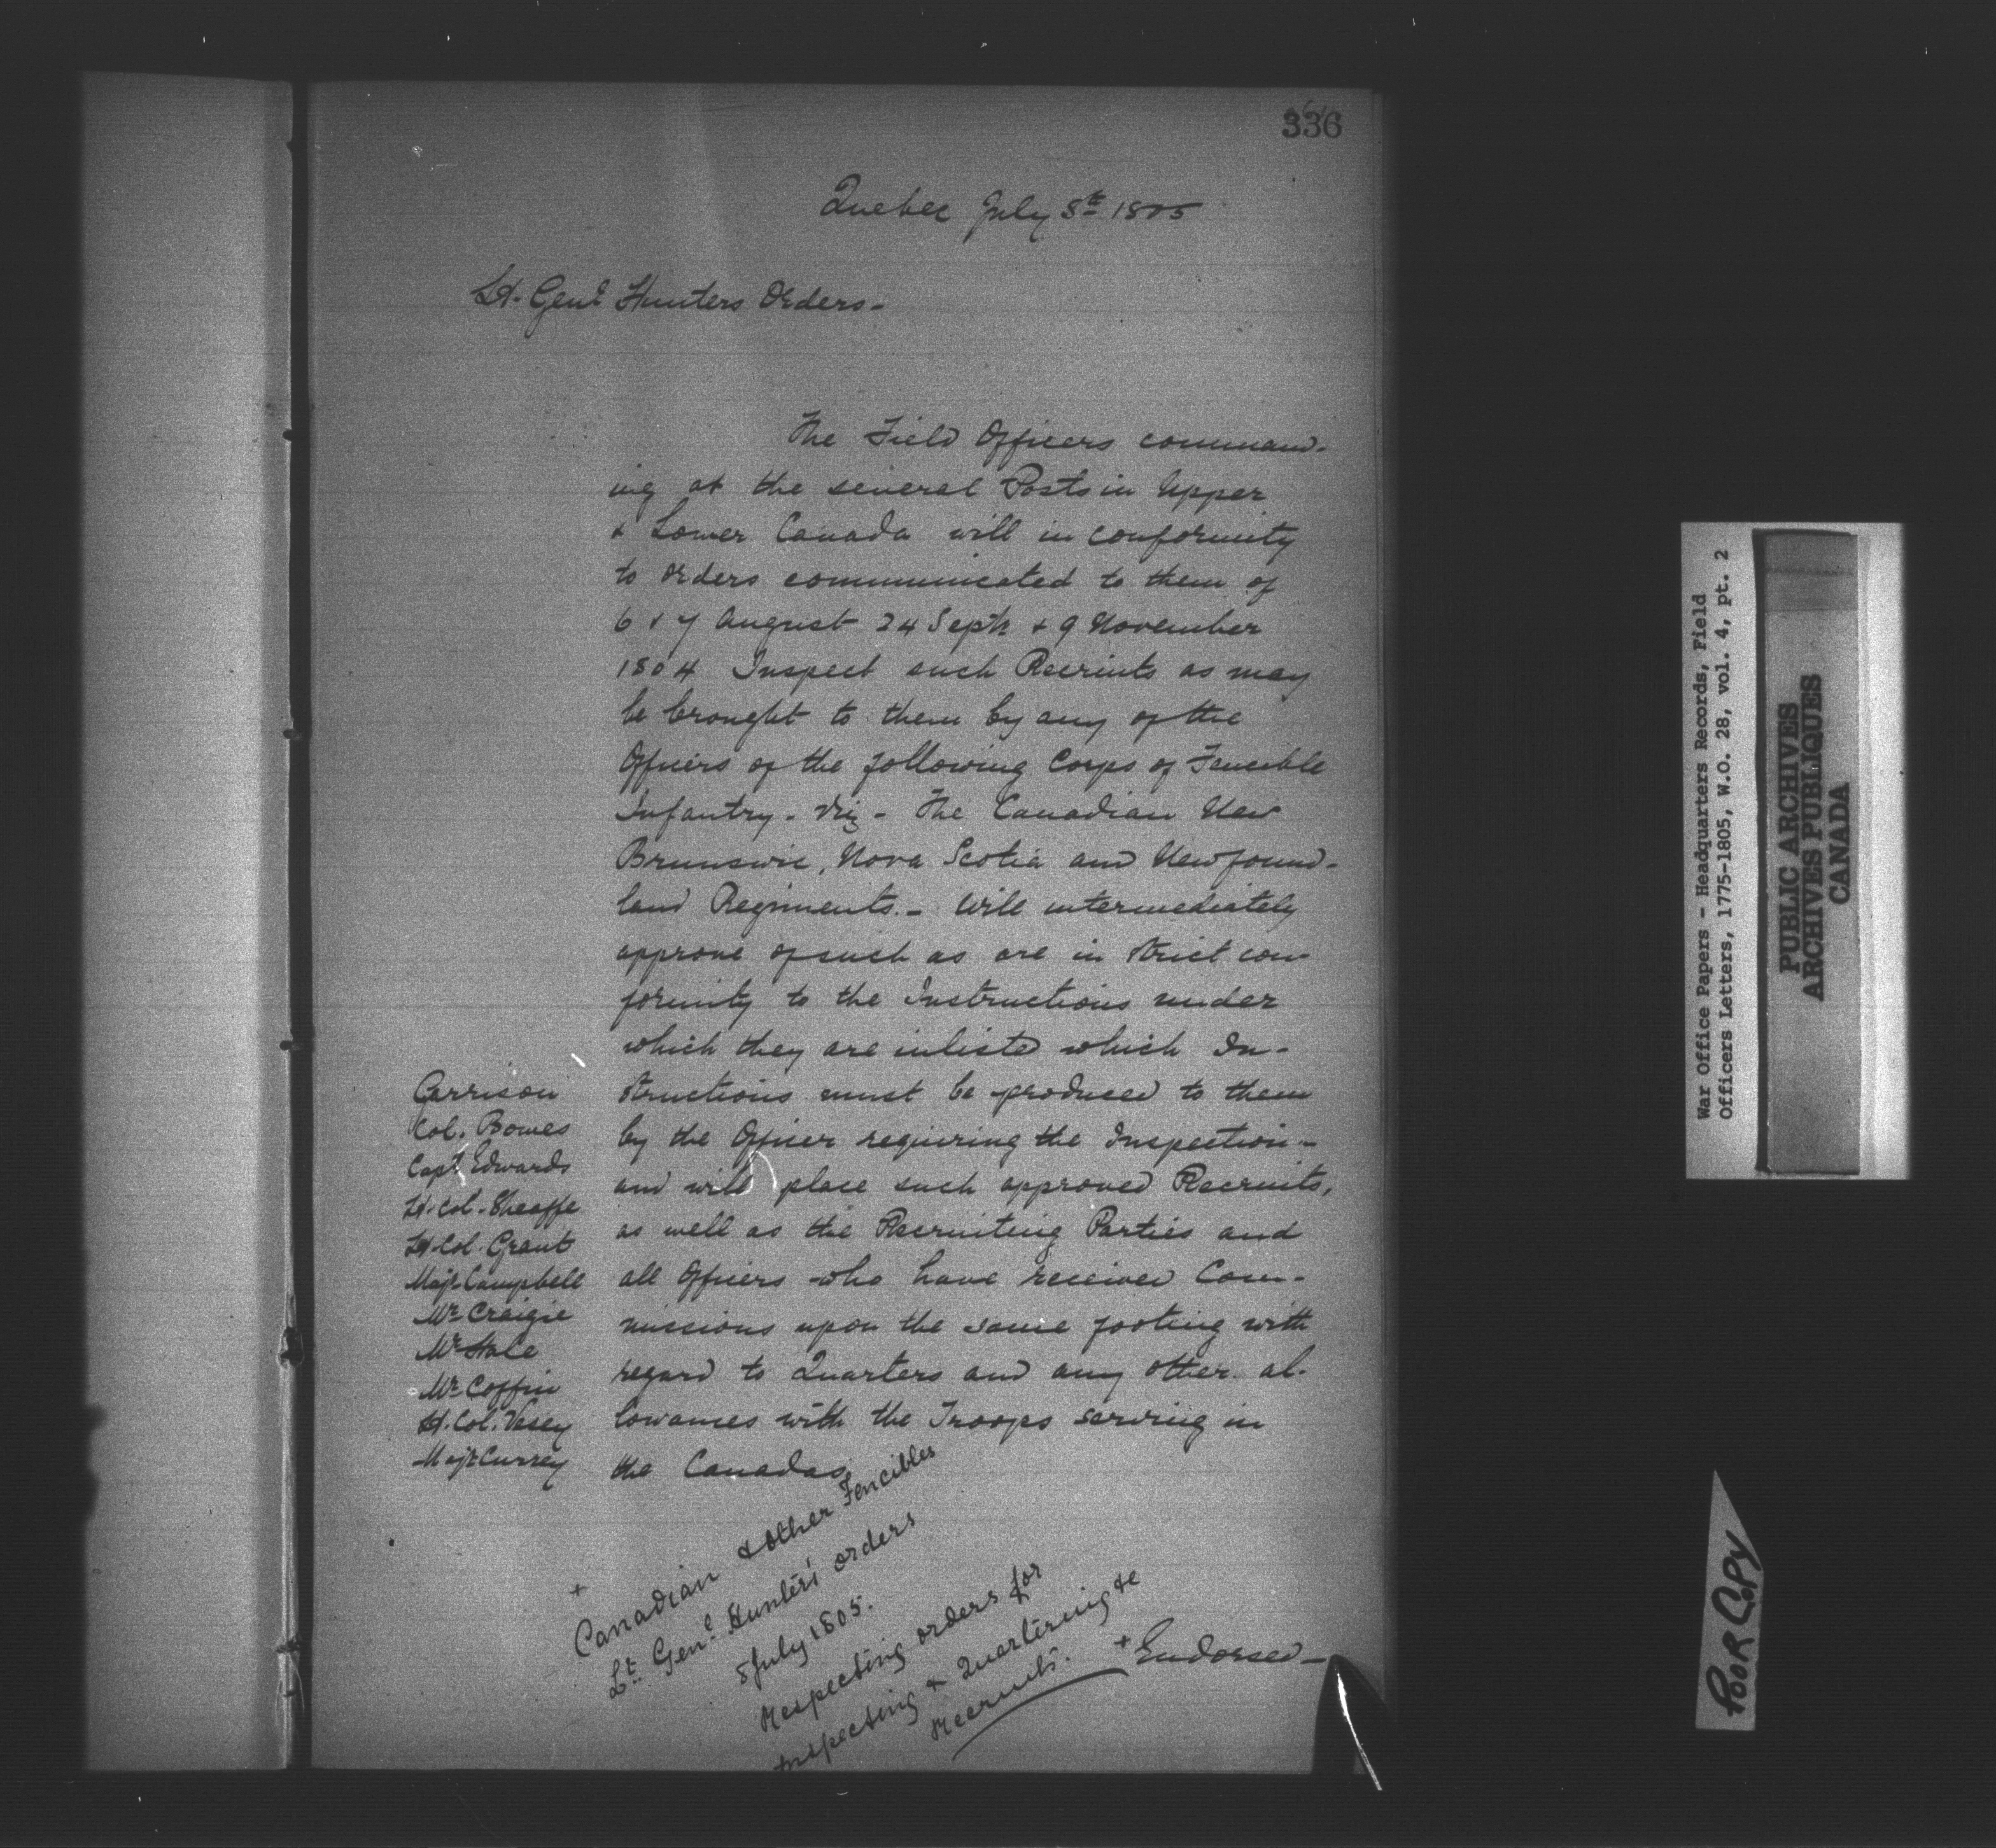 336
Quebec July 8th 1805
Lt. Genl Hunters Orders-
The Field Officers command-
ing at the several Posts in Upper
& Lower Canada will in conformity
to orders communicated to them of
6 & 7 August 24 Septr & 9 November
1804 Inspect such Recruits as may
be brought to them by any of the
Officers of the following Corps of Fencible
Infantry - viz - The Canadian New
Brunswic, Nova Scotia and Newfound-
land Regiments. - Will intermediately
approve of such as are in strict con-
formity to the Instructions under
which they are inlisted which In-
structions must be produced to them
by the Officer requiring the Inspection -
and will place such approved Recruits,
as well as the Recruiting Parties and
all Officers who have received Com-
missions upon the same footing with
regard to Quarters and any other al-
lowances with the Troops serving in
the Canadas
Garrison
Col. Bowes
Capt Edwards
Lt. Col. Sheaffe
Lt. Col. Grant
Majr Campbell
Mr Craigie
Mr Hale
Mr Coffin
Lt. Col. Vesey
Majr Currey
+
Canadian & other Fencibles
Lt. Genl. Hunter's orders
8 July 1805.
Respecting orders for
Inspecting & Quartering &c
Recruits.
+ Endorsed -
War Office Papers - Headquarters Records, Field
Officers Letters, 1775-1805, W.O. 28, vol. 4, pt. 2
PUBLIC ARCHIVES
ARCHIVES PUBLIQUES
CANADA
POOR COPY